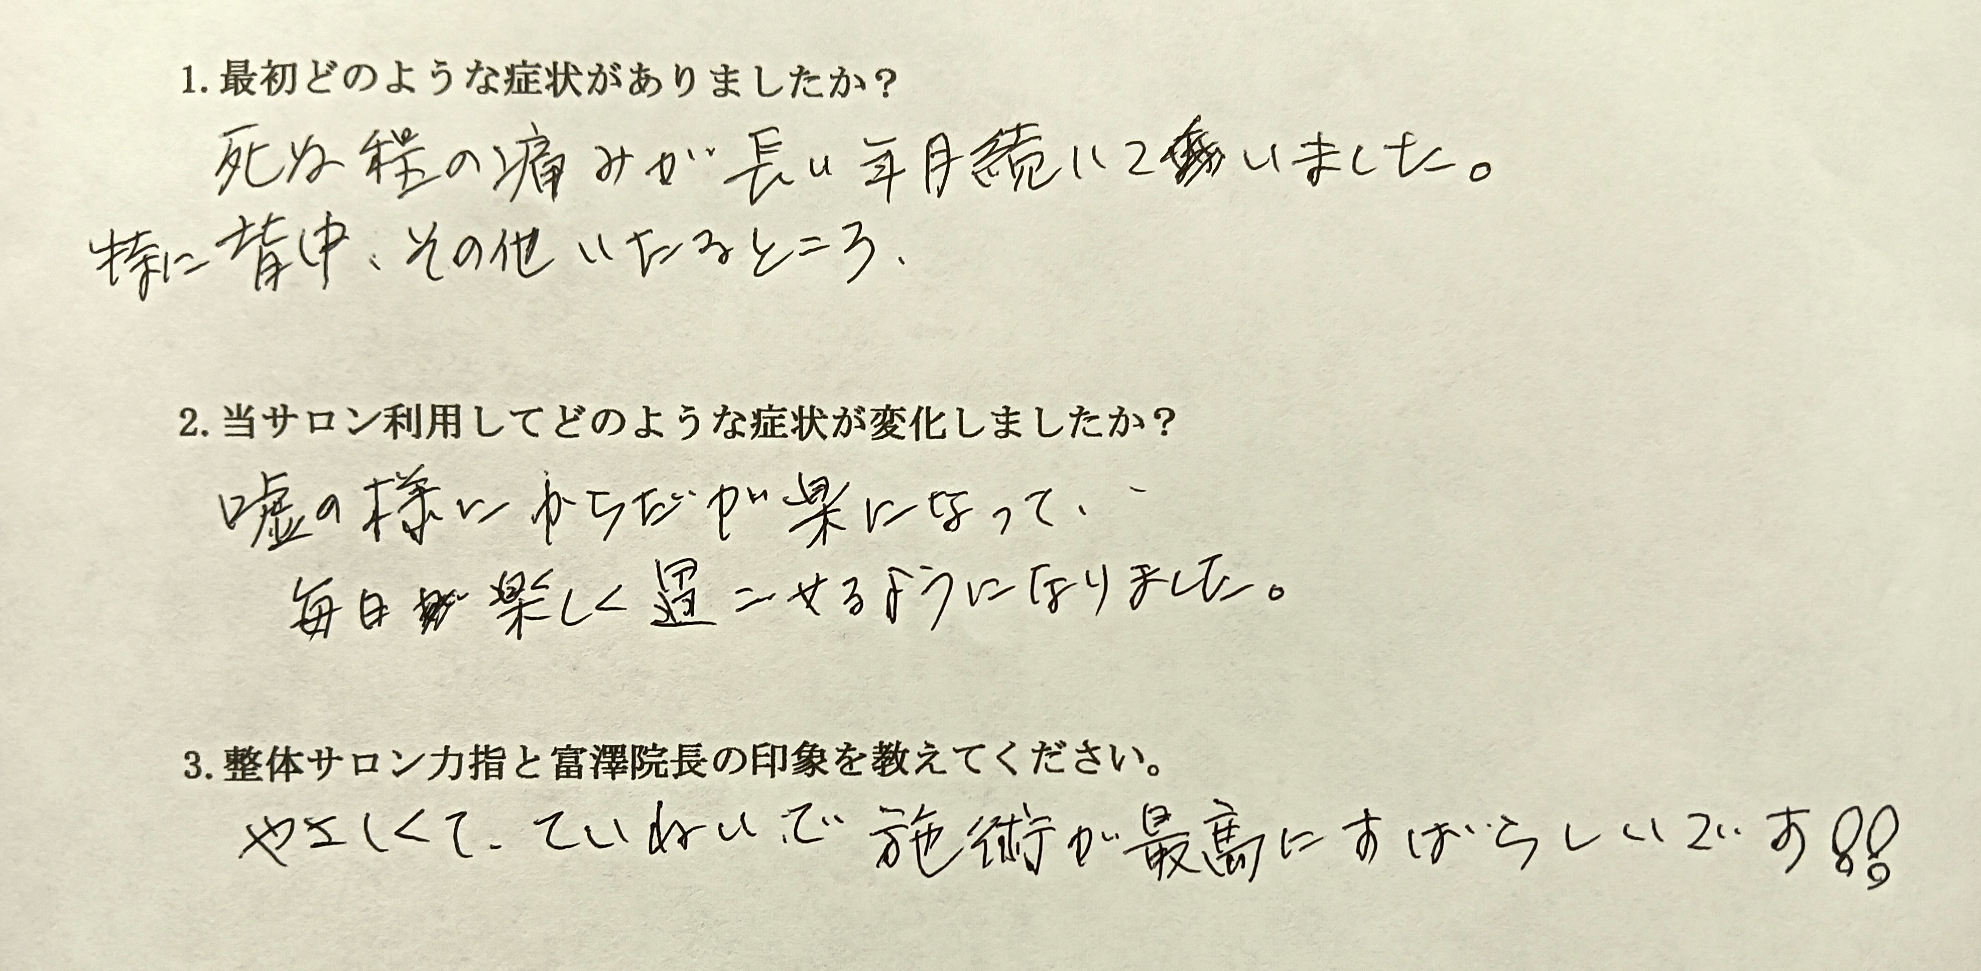 1. 最初どのような症状がありましたか？
死ぬ程の痛みが長い年月続いていました。
特に背中、その他いたるところ、
2. 当サロン利用してどのような症状が変化しましたか？
嘘の様にからだが楽になって、
毎日楽しく過ごせるようになりました。
3. 整体サロン力指と富澤院長の印象を教えてください。
やさしくて、ていねいで施術が最高にすばらしいです!!